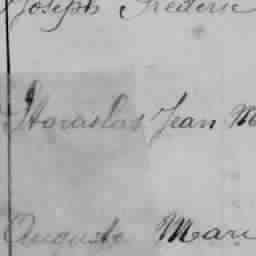 Joseph Frederic
Stanislas Jean M
Auguste Mari